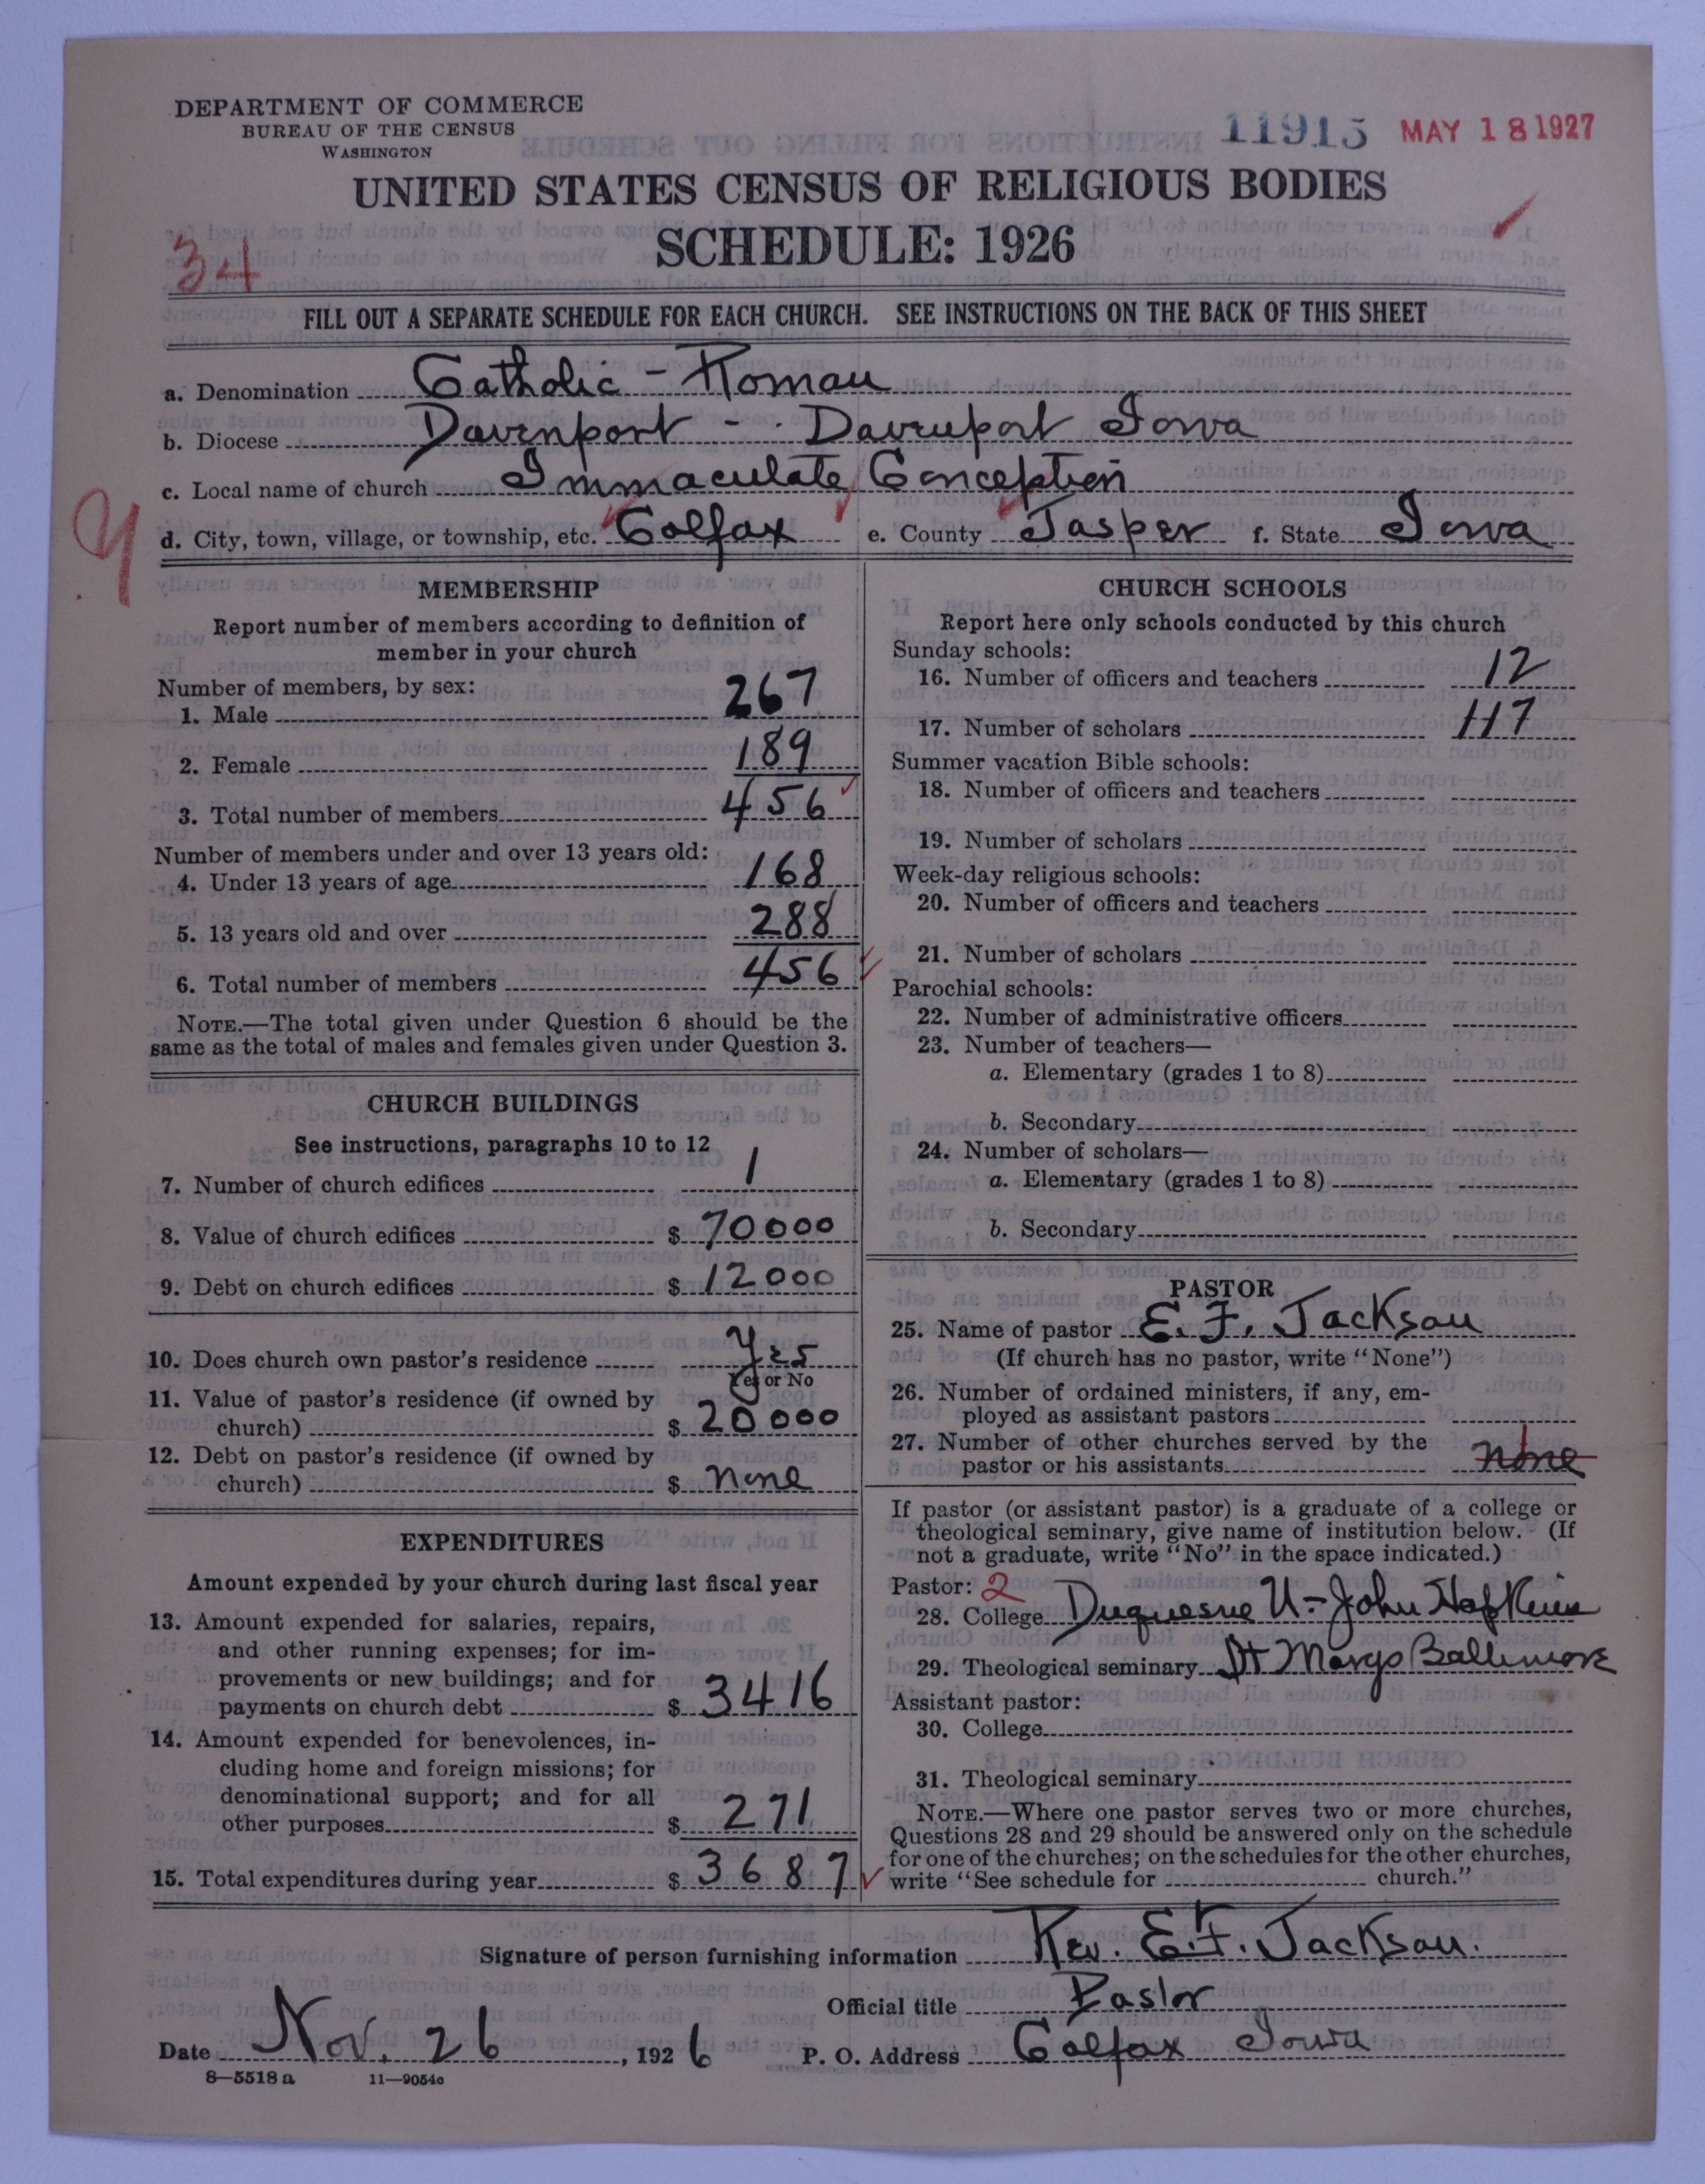 DEPARTMENT OF COMMERCE
BUREAU OF THE CENSUS
WASHINGTON
11915 MAY 18 1927
UNITED STATES CENSUS OF RELIGIOUS BODIES
SCHEDULE: 1926
34
FILL OUT A SEPARATE SCHEDULE FOR EACH CHURCH. SEE INSTRUCTIONS ON THE BACK OF THIS SHEET
a. Denomination Catholic - Roman
b. Diocese Davenport - Davenport Iowa
c. Local name of church Immaculate Conception
d. City, town, village, or township, etc. Colfax e. County Jasper f. State Iowa
MEMBERSHIP
Report number of members according to definition of
member in your church
Number of members, by sex:
1. Male 267
2. Female 189
3. Total number of members 456
Number of members under and over 13 years old:
4. Under 13 years of age 168
5. 13 years old and over 288
6. Total number of members 456
NOTE.—The total given under Question 6 should be the
same as the total of males and females given under Question 3.
CHURCH BUILDINGS
See instructions, paragraphs 10 to 12
7. Number of church edifices 1
8. Value of church edifices $ 70000
9. Debt on church edifices $ 12000
10. Does church own pastor's residence Yes
Yes or No
11. Value of pastor's residence (if owned by
church) $ 20000
12. Debt on pastor's residence (if owned by
church) $ none
EXPENDITURES
Amount expended by your church during last fiscal year
13. Amount expended for salaries, repairs,
and other running expenses; for im-
provements or new buildings; and for
payments on church debt $ 3416
14. Amount expended for benevolences, in-
cluding home and foreign missions; for
denominational support; and for all
other purposes $ 271
15. Total expenditures during year $ 3687
CHURCH SCHOOLS
Report here only schools conducted by this church
Sunday schools:
16. Number of officers and teachers 12
17. Number of scholars 117
Summer vacation Bible schools:
18. Number of officers and teachers
19. Number of scholars
Week-day religious schools:
20. Number of officers and teachers
21. Number of scholars
Parochial schools:
22. Number of administrative officers
23. Number of teachers—
a. Elementary (grades 1 to 8)
b. Secondary
24. Number of scholars—
a. Elementary (grades 1 to 8)
b. Secondary
PASTOR
25. Name of pastor E. F. Jackson
(If church has no pastor, write "None")
26. Number of ordained ministers, if any, em-
ployed as assistant pastors
27. Number of other churches served by the
pastor or his assistants none
If pastor (or assistant pastor) is a graduate of a college or
theological seminary, give name of institution below. (If
not a graduate, write "No" in the space indicated.)
Pastor: 2
28. College Duquesne U - John Hopkins
29. Theological seminary St Marys Baltimore
Assistant pastor:
30. College
31. Theological seminary
NOTE.—Where one pastor serves two or more churches,
Questions 28 and 29 should be answered only on the schedule
for one of the churches; on the schedules for the other churches,
write "See schedule for church."
Signature of person furnishing information Rev. E. F. Jackson.
Official title Pastor
Date Nov. 26, 1926 P. O. Address Colfax Iowa
8—5518 a 11—9054c